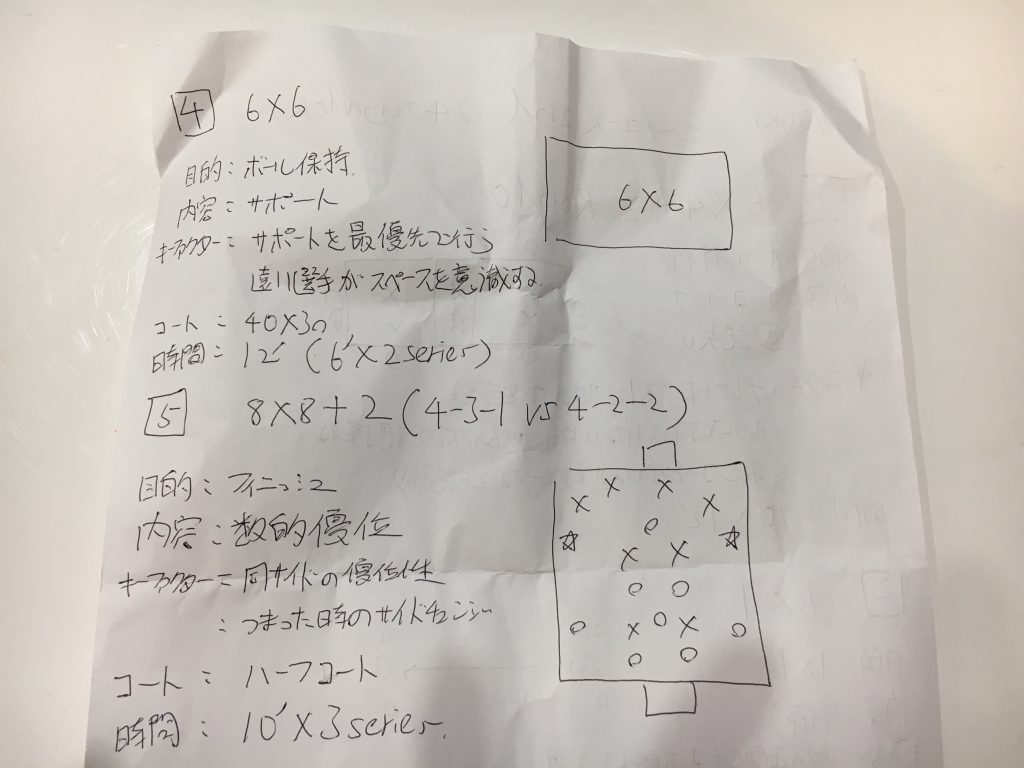 4 6×6
目的：ボール保持.
内容：サポート
キーファクター：サポートを最優先で行う
遠い選手がスペースを意識する.
6×6
コート：40×30
時間：12′（6′×2series）
5 8×8+2（4-3-1 vs 4-2-2）
目的：フィニッシュ
内容：数的優位
キーファクター：同サイドの優位性
：つまった時のサイドチェンジ
コート：ハーフコート
時間：10′×3series.